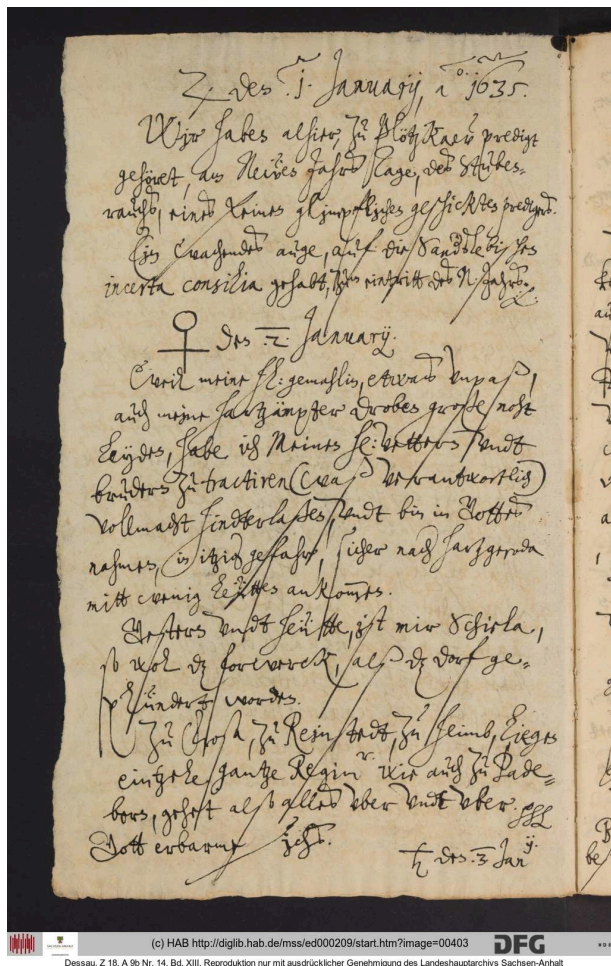 ♃ den .1. Januarij, ao: 1635.
Wir haben alhier, zu Plötzkaw predigt
gehöret, am Newen Jahrs Tage, des Stuben-
rauchs, eines feinen glimpflichen geschickten predigers.
Ein wachendes auge, auf die Sanderslebischen
incerta consilia gehabt, zum eintritt des N. Jahrs. &c.
♀ den .2. January.
Weil meine fr: gemahlin, etwas vnpaß,
auch meine hartzämpter droben große noht
leyden, habe ich meines hr: vettern vndt
bruders zu tractiren (was verantwortlich)
vollmacht hinderlaßen, vndt bin in Gottes
nahmen, in itzig gefahr, sicher nach hartzgeroda
mitt wenig leütten ankommen.
Gestern vndt heütte, ist mir Schiela,
so wol dz forwerck, alß dz dorf ge-
plündert worden.
Zu Croß, zu Reinstedt, zu heimb, liegen
eintzele gantze Regimr. wie auch zu Bade-
born, gehet alß alles vber vndt vber.
Gott erbarme sichs.
♄ den .3. Januarij.
(c) HAB http://diglib.hab.de/mss/ed000209/start.htm?image=00403 DFG
Dessau, Z 18, A 9b Nr. 14, Bd. XIII. Reproduktion nur mit ausdrücklicher Genehmigung des Landeshauptarchivs Sachsen-Anhalt